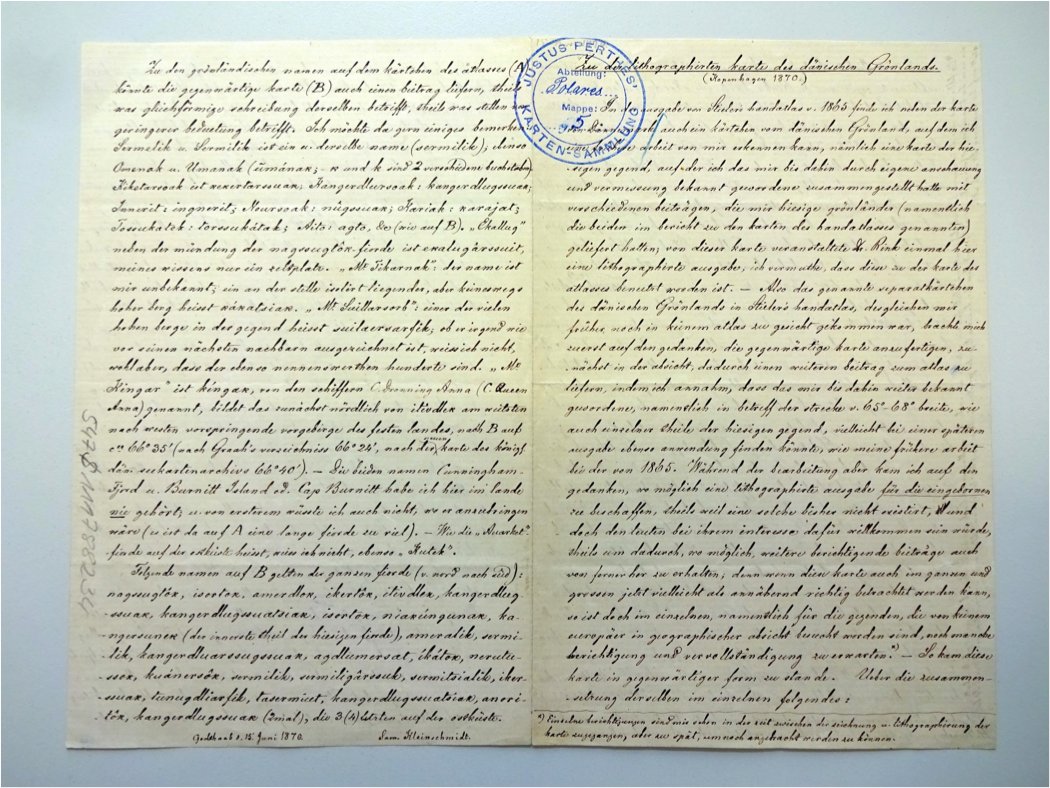 Zu den grönländischen namen auf dem kärtchen des atlasses (A)
könnte die gegenwärtige karte (B) auch einen beitrag liefern, theils
was gleichförmige schreibung derselben betrifft, theils was stellen von
geringerer bedeutung betrifft. Ich möchte da gern einiges bemerken:
Sermelik u. Sermilik ist ein u. derselbe name (sermilik); ebenso
Omenak u. Umanak (ũmánaĸ; - ĸ und k sind 2 verschiedene buchstaben);
Kekertarsoak ist ĸeĸertarssuaĸ; Kangerdlursoak: kangerdlugssuaĸ;
Innerit: ingnerit; Noursoak: nûgssuaĸ; Kariak: ĸarajat;
Tossukatok: torssuĸátaĸ; Aito: agto, &c (wie auf B). „Ekallug"
neben der mündung der nagssugtôĸ-fjorde ist eĸalugárssuit,
meines wissens nur ein zeltplatz. „Mt Tikarnak": der name ist
mir unbekannt; ein an der stelle isolirt liegender, aber keineswegs
hoher berg heisst ĸáĸatsiaĸ. „Mt. Suillarsorb": einer der vielen
hohen berge in der gegend heisst suilaersarfik; ob er irgend wie
vor seinen nächsten nachbarn ausgezeichnet ist, weiss ich nicht,
wohl aber, dass der ebenso nennenswerthen hunderte sind. „Mt
Kingar" ist ĸingaĸ, von den schiffern C. Dronning Anna (C. Queen
Anna) genannt, bildet das zunächst nördlich von itivdleĸ am weitsten
nach westen vorspringende vorgebirge des festen landes, nach B auf
ca 66° 35' (nach Graah's verzeichniss 66° 24', nach der neuen karte des königl.
dän. seekartenarchivs 66° 40'). — Die beiden namen Cunningham-
Fjord u. Burnitt Island od. Cap Burnitt habe ich hier im lande
nie gehört, u. von ersterem wüsste ich auch nicht, wo er anzubringen
wäre (es ist da auf A eine lange fjorde zu viel). — Wie die „Auarket"-
fjorde auf der ostküste heisst, weiss ich nicht, ebenso „Kutek".
Folgende namen auf B gelten der ganzen fjorde (v. nord nach süd):
nagssugtôĸ, isortoĸ, amerdloĸ, iĸertôĸ, itivdleĸ, kangerdlug-
ssuaĸ, kangerdlugssuatsiaĸ, isortôĸ, niaĸúngunaĸ, ka-
ngersuneĸ (der innerste theil der hiesigen fjorde), ameralik, sermi-
lik, kangerdluarssugssuaĸ, agdlumersat, iĸátoĸ, nerutu-
ssoĸ, kuánersôĸ, sermilik, sermiligârssuk, sermitsialik, iĸer-
ssuaĸ, tunugdliarfik, tasermiut, kangerdlugssuatsiaĸ, anori-
tôĸ, kangerdlugssuaĸ (2mal), die 3 (4) letzten auf der ostküste.
Godthaab d. 15. Juni 1870. Sam. Kleinschmidt.
SPA 4° M 1178822 34
JUSTUS PERTHES'
KARTEN-SAMMLUNG
Abteilung:
Polares
Mappe:
5
Zu der lithographierten karte des dänischen Grönlands.
(Kopenhagen 1870.)
In der ausgabe von Stielers handatlas v. 1865 finde ich neben der karte
von Dännemark auch ein kärtchen vom dänischen Grönland, auf dem ich
eine frühere arbeit von mir erkennen kann, nämlich eine karte der hie-
sigen gegend, auf der ich das mir bis dahin durch eigene anschauung
und vermessung bekannt gewordene zusammengestellt hatte mit
verschiedenen beiträgen, die mir hiesige grönländer (namentlich
die beiden im bericht zu den karten des handatlasses genannten)
geliefert hatten; von dieser karte veranstaltete Dr. Rink einmal hier
eine lithographirte ausgabe, ich vermuthe, dass diese zu der karte des
atlasses benutzt worden ist. — Also das genannte separatkärtchen
des dänischen Grönlands in Stielers handatlas, desgleichen mir
früher noch in keinem atlas zu gesicht gekommen war, brachte mich
zuerst auf den gedanken, die gegenwärtige karte anzufertigen, zu-
nächst in der absicht, dadurch einen weiteren beitrag zum atlas zu
liefern, indem ich annahm, dass das mir bis dahin weiter bekannt
gewordene, namentlich in betreff der strecke v. 65°-68° breite, wie
auch einzelner theile der hiesigen gegend, vielleicht bei einer späteren
ausgabe ebenso anwendung finden könnte, wie meine frühere arbeit
bei der von 1865. Während der bearbeitung aber kam ich auf den
gedanken, wo möglich eine lithographirte ausgabe für die eingebornen
zu beschaffen, theils weil eine solche bisher nicht existirt, und
doch den leuten bei ihrem interesse dafür willkommen sein würde,
theils um dadurch, wo möglich, weitere berichtigende beiträge auch
von ferner her zu erhalten; denn wenn diese karte auch im ganzen und
grossen jetzt vielleicht als annähernd richtig betrachtet werden kann,
so ist doch im einzelnen, namentlich für die gegenden, die von keinem
europäer in geographischer absicht besucht worden sind, noch manche
berichtigung und vervollständigung zu erwarten.*) — So kam diese
karte in gegenwärtiger form zu stande. Ueber die zusammen-
setzung derselben im einzelnen folgendes:
*) Einzelne berichtigungen sind mir schon in der zeit zwischen der zeichnung u. lithographirung der
karte zugegangen, aber zu spät, um noch angebracht werden zu können.